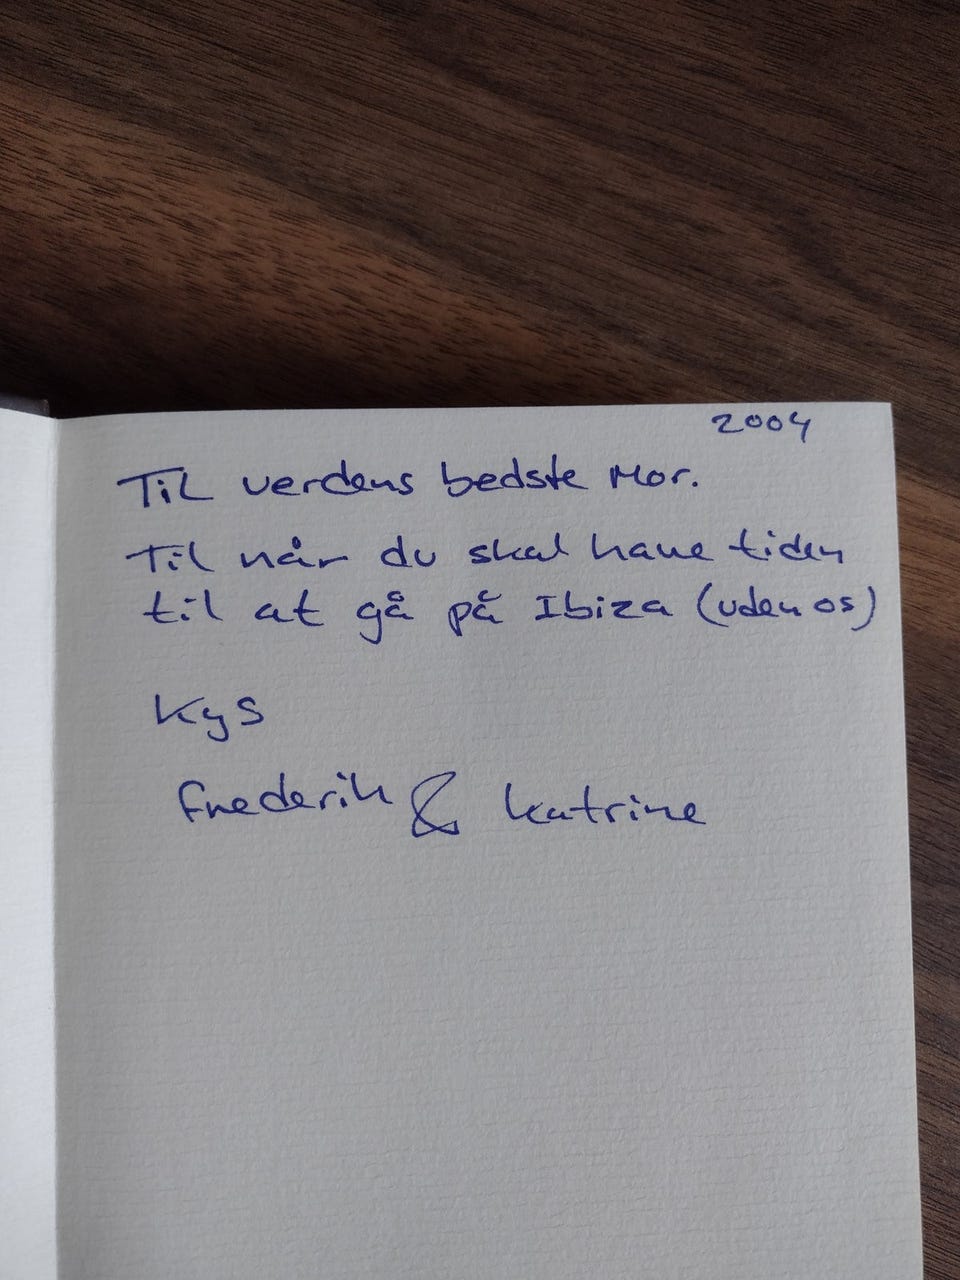 2004
Til verdens bedste Mor.
Til når du skal have tiden
til at gå på Ibiza (uden os)
Kys
Frederik & Katrine